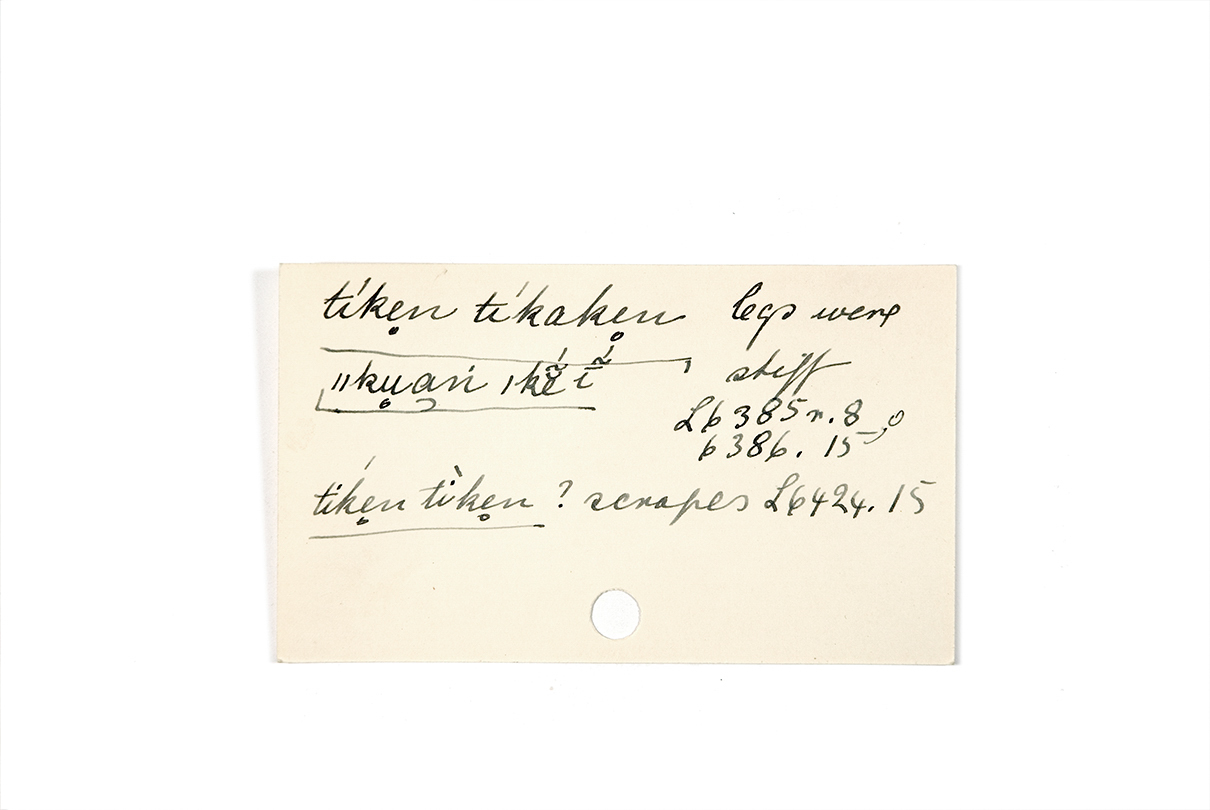 tíkẹn tíkakẹn legs were
ııkụaṅ ıkẽ́ĩ́ stiff
L6385r.8
6386.15,0
tíkẹn tìkẹn ? scrapes L6424.15